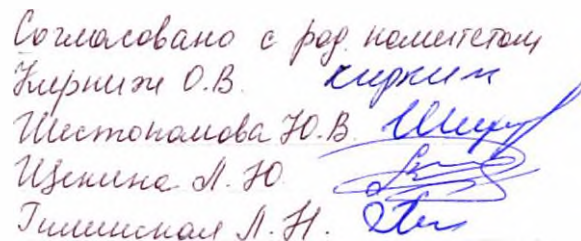 Согласовано с род. комитетом
Киркиж О.В. киркиж
Шестопалова Ю.В.
Щекина Л.Ю.
Л.Н.